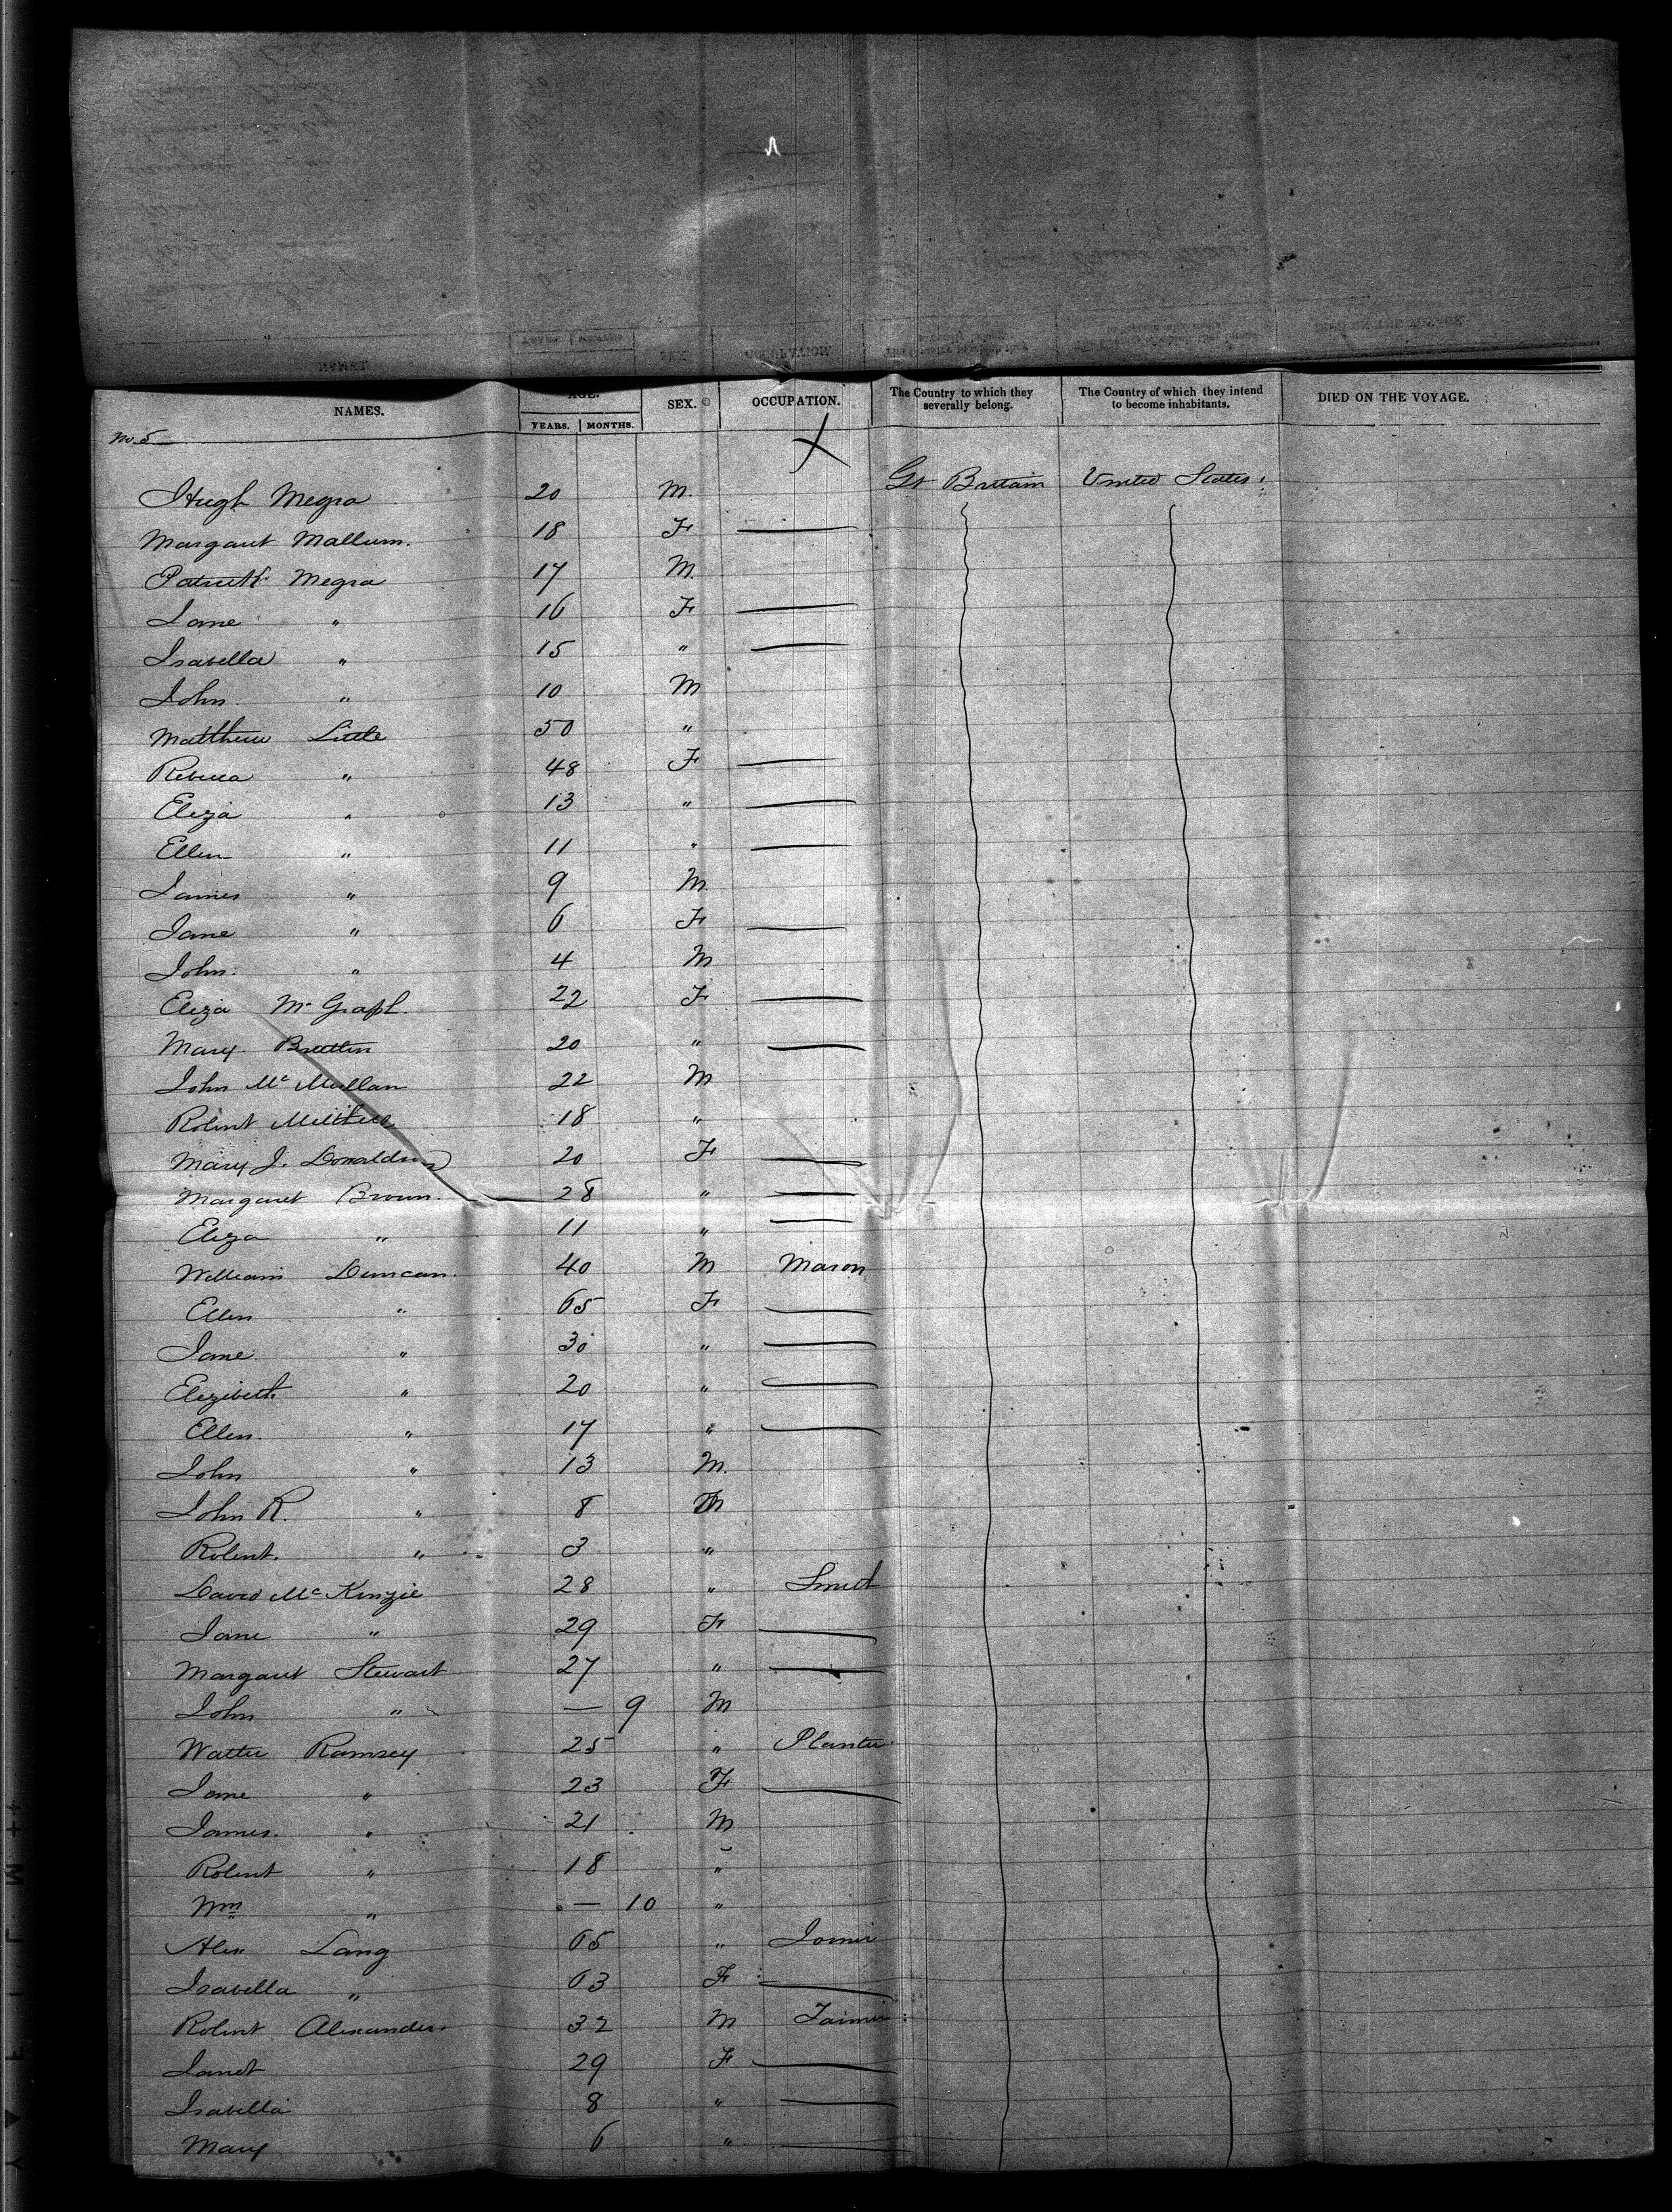 NAMES. AGE. SEX. OCCUPATION. The Country to which they severally belong. The Country of which they intend to become inhabitants. DIED ON THE VOYAGE.
YEARS. MONTHS.
No. 5
Hugh Megra 20 M. Gt Brittain United States.
Margaret Mallum. 18 F —
Patrick Megra 17 M.
Jane " 16 F —
Isabella " 15 " —
John " 10 M
Matthew Little 50 "
Rebecca " 48 F —
Eliza " 13 " —
Ellen " 11 " —
James " 9 M
Jane " 6 F —
John " 4 M
Eliza Mc 22 F —
Mary 20 " —
John Mc Mullan 22 M
Robert Mitchell 18 "
Mary J. Donaldson 20 F —
Margaret Brown. 28 " —
Eliza " 11 " —
William Duncan. 40 M Mason
Ellen " 65 F —
Jane " 30 " —
Elezibeth " 20 " —
Ellen. " 17 " —
John " 13 M.
John R. " 8 M
Robert. " 3 "
David Mc Kinzie 28 " Smith
Jane " 29 F —
Margaret Stewart 27 " —
John " — 9 M
Walter Ramsey 25 " Planter
Jane " 23 F —
James. " 21 M
Robert " 18 "
Wm " — 10 "
Alex Lang 65 " Joiner
Isabella " 63 F —
Robert Alexander. 32 M Farmer
Janet 29 F —
Isabella 8 " —
Mary 6 " —